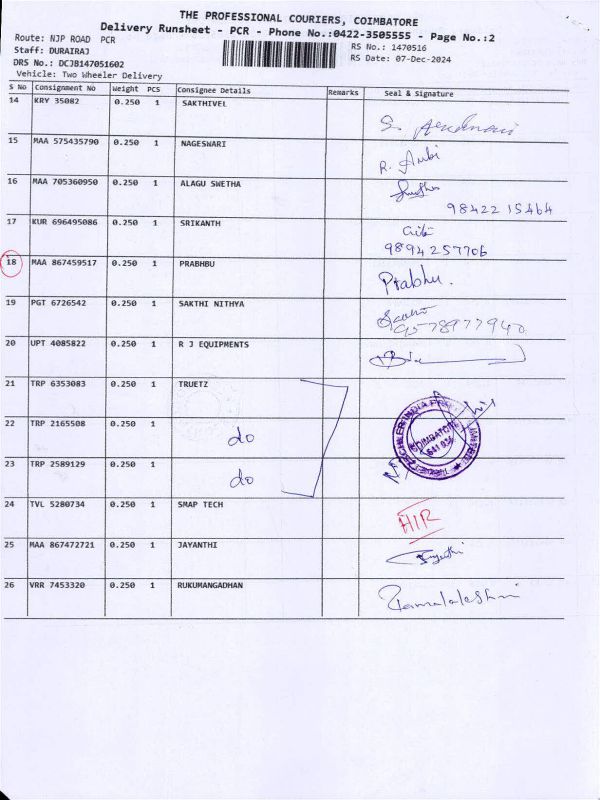 THE PROFESSIONAL COURIERS, COIMBATORE
Delivery Runsheet - PCR - Phone No.:0422-3505555 - Page No.:2
Route: NJP ROAD PCR
RS No.: 1470516
Staff: DURAIRAJ
RS Date: 07-Dec-2024
DRS No.: DCJB147051602
Vehicle: Two Wheeler Delivery
S No Consignment No Weight PCS Consignee Details Remarks Seal & Signature
14 KRY 35082 0.250 1 SAKTHIVEL
15 MAA 575435790 0.250 1 NAGESWARI R. Anbi
16 MAA 705360950 0.250 1 ALAGU SWETHA
98422 15464
17 KUR 696495086 0.250 1 SRIKANTH
9894257706
18 MAA 867459517 0.250 1 PRABHBU Prabhu.
19 PGT 6726542 0.250 1 SAKTHI NITHYA
9578977940
20 UPT 4085822 0.250 1 R J EQUIPMENTS
21 TRP 6353083 0.250 1 TRUETZ
22 TRP 2165508 0.250 1 do
23 TRP 2589129 0.250 1 do
COIMBATORE
641 034
24 TVL 5280734 0.250 1 SMAP TECH HIR
25 MAA 867472721 0.250 1 JAYANTHI
26 VRR 7453320 0.250 1 RUKUMANGADHAN